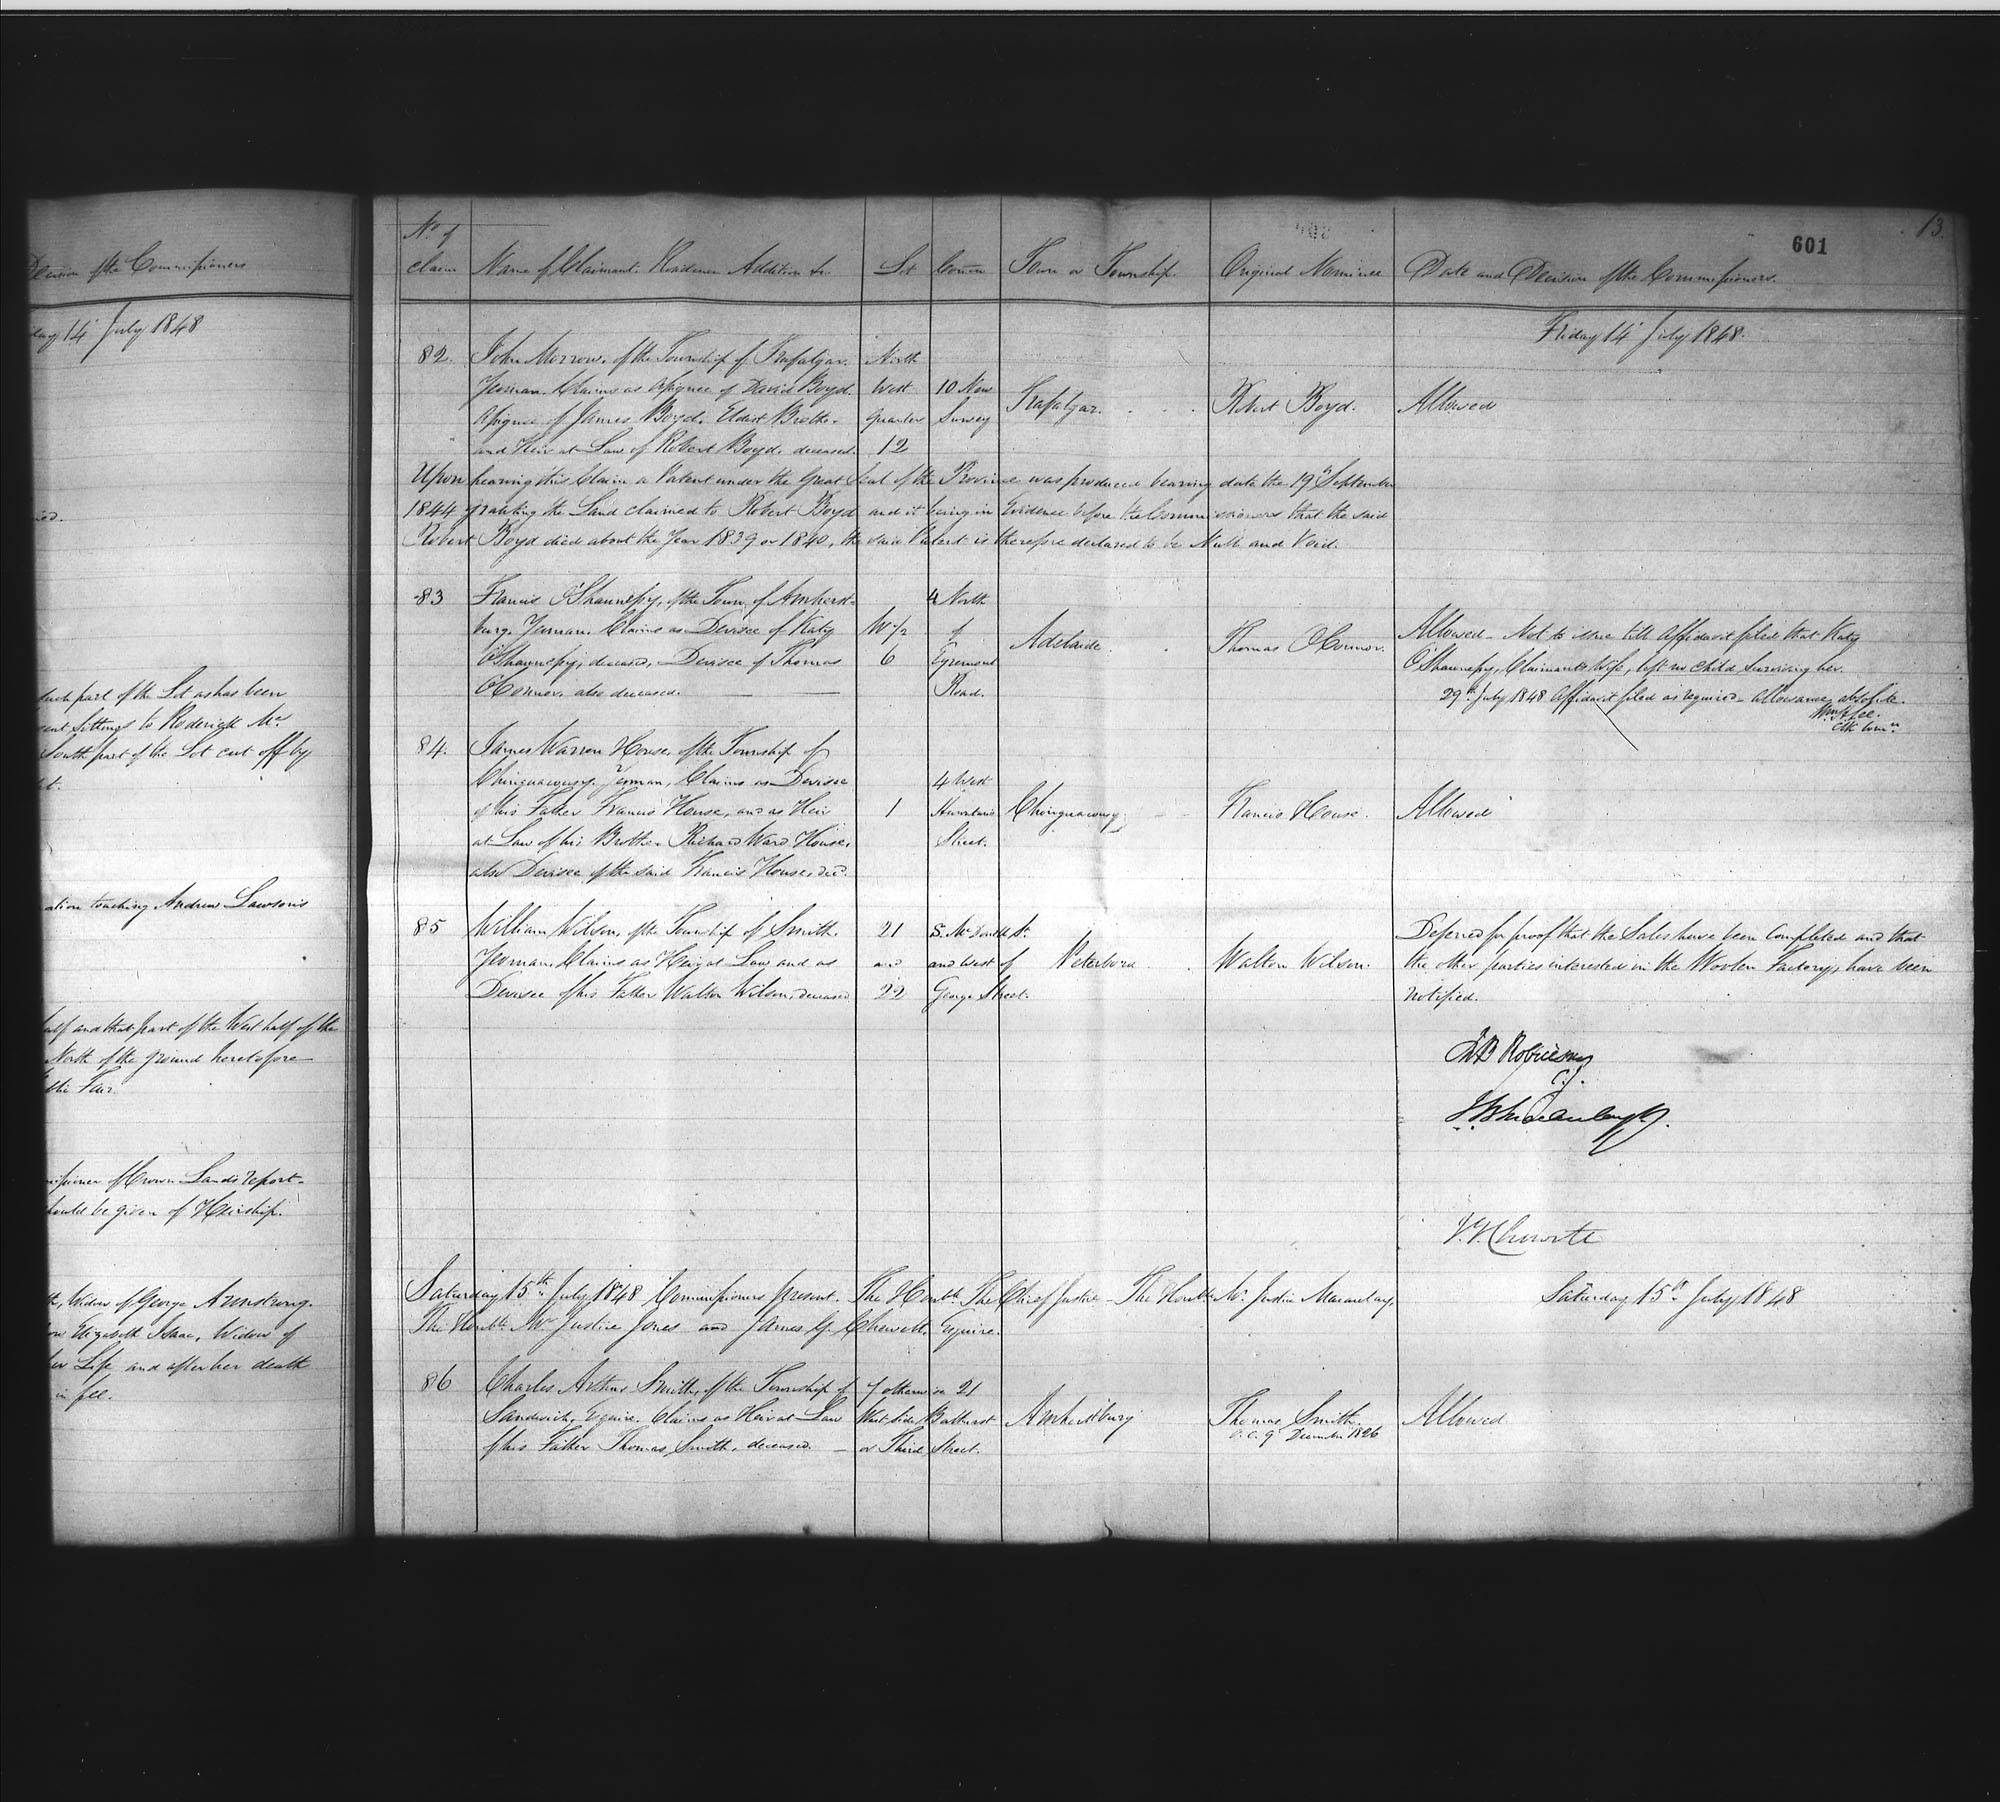 Decision of the Commissioners
14 July 1848
such part of the Lot as has been
sent Sittings to Roderick Mc
South part of the Lot cut off by
ation touching Andrew Lawson's
half and that part of the West half of the
North of the ground heretofore
the Fair
missioner of Crown Lands report
should be given of Heirship.
Widow of George Armstrong.
Elizabeth Isaac, Widow of
her Life and after her death
in fee.
13
601
No. of
Claim Name of Claimant. Residence Addition &c. Lot Con:on Town or Township. Original Nominee Date and Decision of the Commissioners.
Friday 14 July 1848.
82. John Morrow, of the Township of Trafalgar. North
Yeoman. Claims as Assignee of David Boyd. West 10 New
Assignee of James Boyd. Eldest Brother quarter Survey Trafalgar. Robert Boyd. Allowed
and Heir at Law of Robert Boyd. deceased. 12
Upon hearing this Claim a Patent under the Great Seal of the Province was produced bearing date the 19th September
1844 granting the Land claimed to Robert Boyd and it being in Evidence before the Commissioners that the said
Robert Boyd died about the Year 1839 or 1840, the said Patent is therefore declared to be Null and Void.
83 Francis O'Shaunessy, of the Town of Amherst- 4 North
burg. Yeoman. Claims as Devisee of Katy W 1/2 of Adelaide. Thomas O'Connor. Allowed - Not to issue till Affidavit filed that Katy
O'Shaunessy, deceased, Devisee of Thomas 6 Egremont O'Shaunessy, Claimant's Wife, left no child surviving her.
O'Connor, also deceased. Road. 29th July 1848 Affidavit filed as required - allowance absolute.
Wm Lee.
Clk Com:n
84. James Warren House, of the Township of
Chinguacousy. Yeoman, Claims as Devisee 4 West
of his Father Francis House, and as Heir 1 Hurontario Chinguacousy Francis House. Allowed
at Law of his Brother Richard Ward House, Street.
also Devisee of the said Francis House, dec'd.
85 William Wilson, of the Township of Smith. 21 S. McDonell St. Deferred for proof that the Sales have been Completed and that
Yeoman. Claims as Heir at Law and as and and West of Peterboro Walton Wilson. the other parties interested in the Woolen Factory, have been
Devisee of his Father Walton Wilson, deceased 22 George Street. notified.
Jno B Robinson
C.J.
J B Macaulay J.
J. G. Chewett
Saturday 15th July 1848 Commissioners present. The Honble. The Chief Justice - The Honble Mr. Justice Macaulay, Saturday 15th July 1848
The Honble. Mr Justice Jones and James G. Chewett, Esquire.
86 Charles Arthur Smith, of the Township of 7 otherwise 21
Sandwich, Esquire. Claims as Heir at Law West side Bathurst Amherstburg Thomas Smith. Allowed
of his Father Thomas Smith, deceased. or Third Street. O.C. 9 December 1826